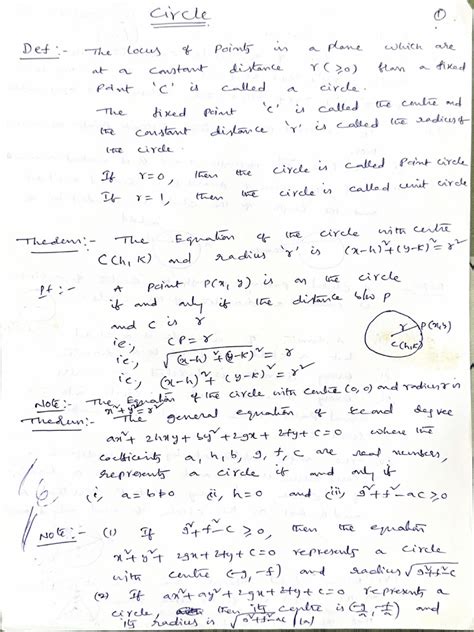 Circle ①
Def :- The locus of points in a plane which are
at a constant distance r(≥0) from a fixed
point 'C' is called a circle.
The fixed point 'c' is called the centre and
the constant distance 'r' is called the radius of
the circle.
If r=0, then the circle is called point circle
If r=1, then the circle is called unit circle
Theorem:- The Equation of the circle with centre
C(h,k) and radius 'r' is (x-h)²+(y-k)²=r²
Pf :- A point P(x,y) is on the circle
if and only if the distance b/w P
and C is r
ie., CP=r
ie., √(x-h)²+(y-k)² = r
ie., (x-h)²+(y-k)²=r²
r P(x,y)
C(h,k)
Note:- The Equation of the circle with centre (0,0) and radius r is
x²+y²=r²
Theorem:- The general equation of second degree
ax²+2hxy+by²+2gx+2fy+c=0 where the
coefficients a, h, b, g, f, c are real numbers,
represents a circle if and only if
(i, a=b≠0 (ii, h=0 and (iii) g²+f²-ac≥0
Note:- (1) If g²+f²-c≥0, then the equation
x²+y²+2gx+2fy+c=0 represents a circle
with centre (-g,-f) and radius √g²+f²-c
(2) If ax²+ay²+2gx+2fy+c=0 represents a
circle, then its centre is (-g/a, -f/a) and
its radius is √g²+f²-ac/|a|